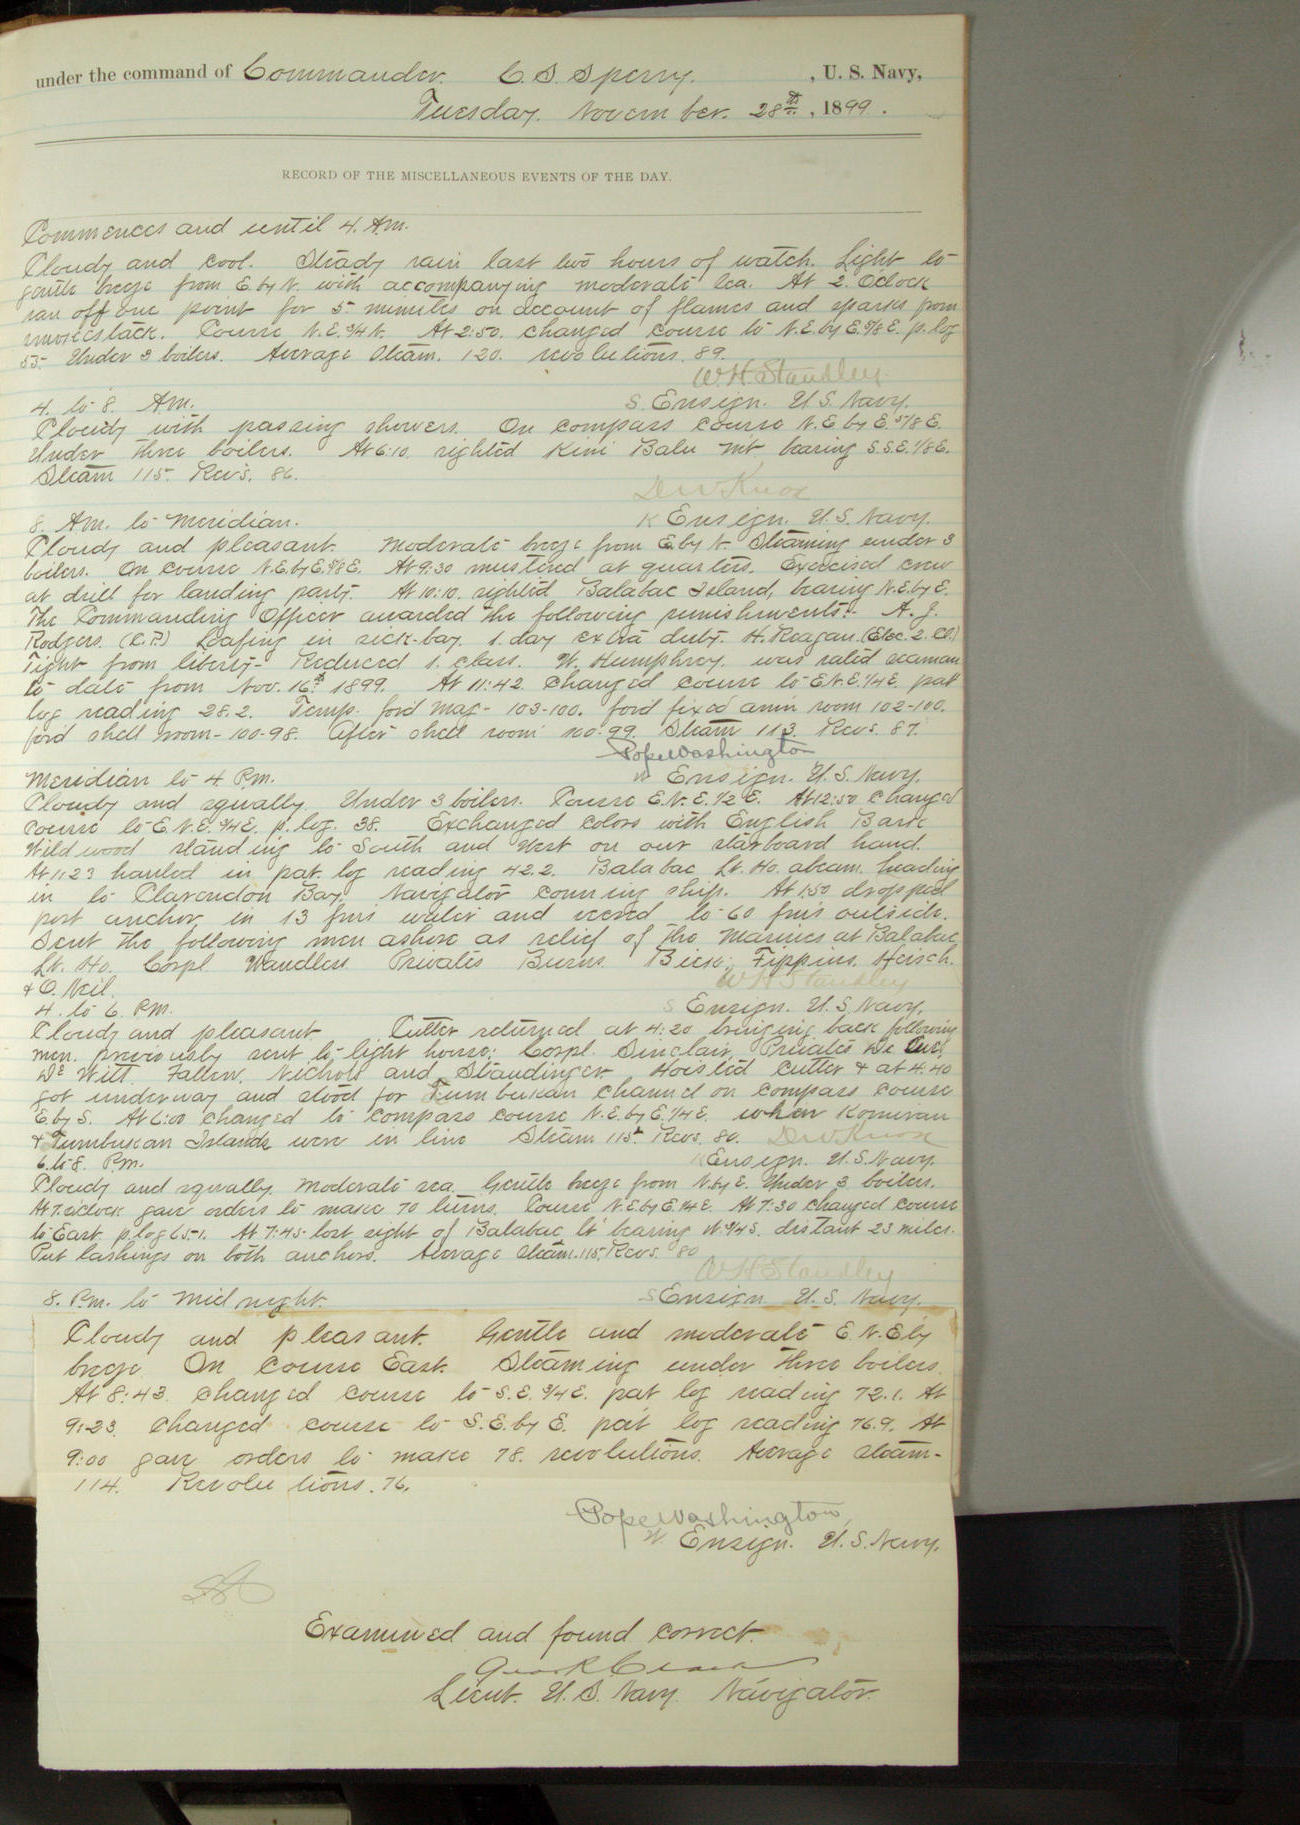 under the command of Commander. C. S. Sperry. , U. S. Navy,
Tuesday. November. 28th. , 1899.
RECORD OF THE MISCELLANEOUS EVENTS OF THE DAY.
Commences and until 4. A.m.
Cloudy and cool. Steady rain last two hours of watch. Light to
gentle breeze from E. by N. with accompanying moderate sea. At 2. O'clock
ran off one point for 5 minutes on account of flames and sparks from
smokestack. Course N.E. 3/4 N. At 2:50. changed course to N.E. by E. 5/8 E. p. log
55. Under 3 boilers. Average Steam. 120. revolutions. 89.
W. H. Standley
4. to 8. A.m. S. Ensign. U.S. Navy.
Cloudy with passing showers. On compass course N.E. by E. 5/8 E.
Under three boilers. At 6:10. sighted Kini Balu mt. bearing S.S.E. 1/8 E.
Steam 115. Revs. 86.
D W Knox
8. A.m. to Meridian. K Ensign. U.S. Navy.
Cloudy and pleasant. Moderate breeze from E. by N. Steaming under 3
boilers. On course N.E. by E. 5/8 E. At 9:30 mustered at quarters. Exercised crew
at drill for landing party. At 10:10. sighted Balabac Island, bearing N.E. by E.
The Commanding Officer awarded the following punishments:- A. J.
Rodgers. (C.P.) Loafing in sick-bay. 1. day extra duty. H. Reagan. (Elec. 2. Cl.)
Tight from liberty- Reduced 1. class. W. Humphrey. was rated seaman
to date from Nov. 16th 1899. At 11:42 changed course to E.N.E. 1/4 E. pat
log reading 28.2. Temp. ford mag- 103-100. ford fixed amn room 102-100.
ford shell room- 100-98. After shell room 100-99. Steam 113. Revs. 87.
Pope Washington
Meridian to 4 P.m. W Ensign. U.S. Navy.
Cloudy and squally. Under 3 boilers. Course E.N.E. 1/2 E. At 12:50 changed
course to E.N.E. 3/4 E. p. log. 38. Exchanged colors with English Bark
Wildwood standing to South and West on our starboard hand.
At 1:23 hauled in pat. log reading 42.2. Balabac Lt. Ho. abeam. heading
in to Clarendon Bay. Navigator conning ship. At 1:50 dropped
port anchor in 13 fms water and veered to 60 fms outside.
Sent the following men ashore as relief of the Marines at Balabac
Lt. Ho. Corpl Wandless Privates Burns. Fippins.
& O. Neil. W H Standley
4. to 6. P.M. S Ensign. U.S. Navy.
Cloudy and pleasant Cutter returned at 4:20 bringing back following
men. previously sent to light house: Corpl. Sinclair, Privates
De Witt. Fallen. Nichols and Standinger. Hoisted cutter & at 4:40
got underway and stood for channel on compass course
E. by S. At 6:00 changed to compass course N.E. by E. 1/4 E. when
& Islands were in line Steam 115. Revs. 80. D W Knox
6. to 8. P.m. K Ensign. U.S. Navy.
Cloudy and squally. Moderate sea. Gentle breeze from N. by E. Under 3 boilers.
At 7. o'clock gave orders to make 70 turns. Course N.E. by E. 1/4 E. At 7:30 changed course
to East. p. log 65.1. At 7:45. lost sight of Balabac lt bearing W. 3/4 S. distant 23 miles.
Put lashings on both anchors. Average steam. 115. Revs. 80
W H Standley
8. P.m. to Mid night. S Ensign U.S. Navy.
Cloudy and pleasant. Gentle and moderate E.N.E'ly
breeze On course East. Steaming under three boilers.
At 8:43 changed course to S.E. 3/4 E. pat log reading 72.1. At
9:23. changed course to S.E. by E. pat log reading 76.9. At
9:00 gave orders to make 78. revolutions. Average steam-
114. Revolutions. 76.
Pope Washington,
W. Ensign. U.S. Navy.
Examined and found correct.
Lieut. U.S. Navy. Navigator.